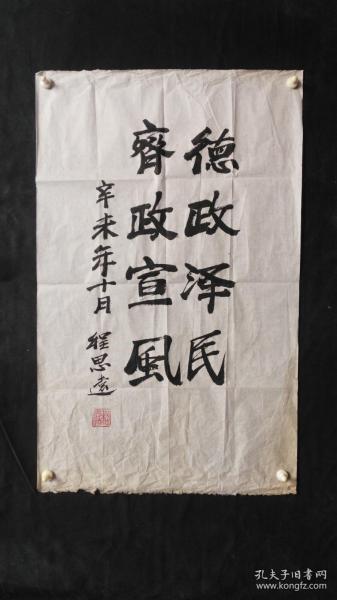 德政泽民
齊政宣風
辛未年十月 程思遠
孔夫子旧书网
www.kongfz.com